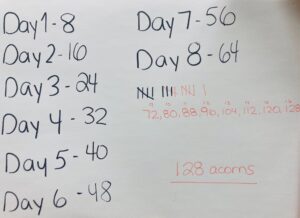 Day 1-8
Day 2-16
Day 3-24
Day 4-32
Day 5-40
Day 6-48
Day 7-56
Day 8-64
72,80,88,96,104,112,120,128
128 acorns